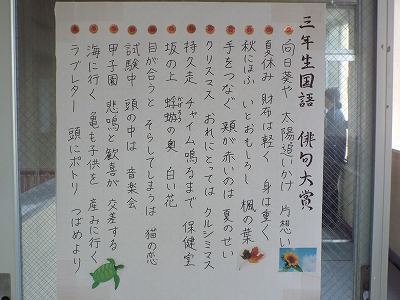 三年生国語　俳句大賞
向日葵や　太陽追いかけ　片想い
夏休み　財布は軽く　身は重く
秋にほふ　いとおもしろし　楓の葉
手をつなぐ　頬が赤いのは　夏のせい
クリスマス　おれにとっては　クルシミマス
持久走　チャイム鳴るまで　保健室
坂の上　蜉蝣の奥　白い花
目が合うと　そらしてしまうは　猫の恋
試験中　頭の中は　音楽会
甲子園　悲鳴と歓喜が　交差する
海に行く　亀も子供を　産みに行く
ラブレター　頭にポトリ　つばめより